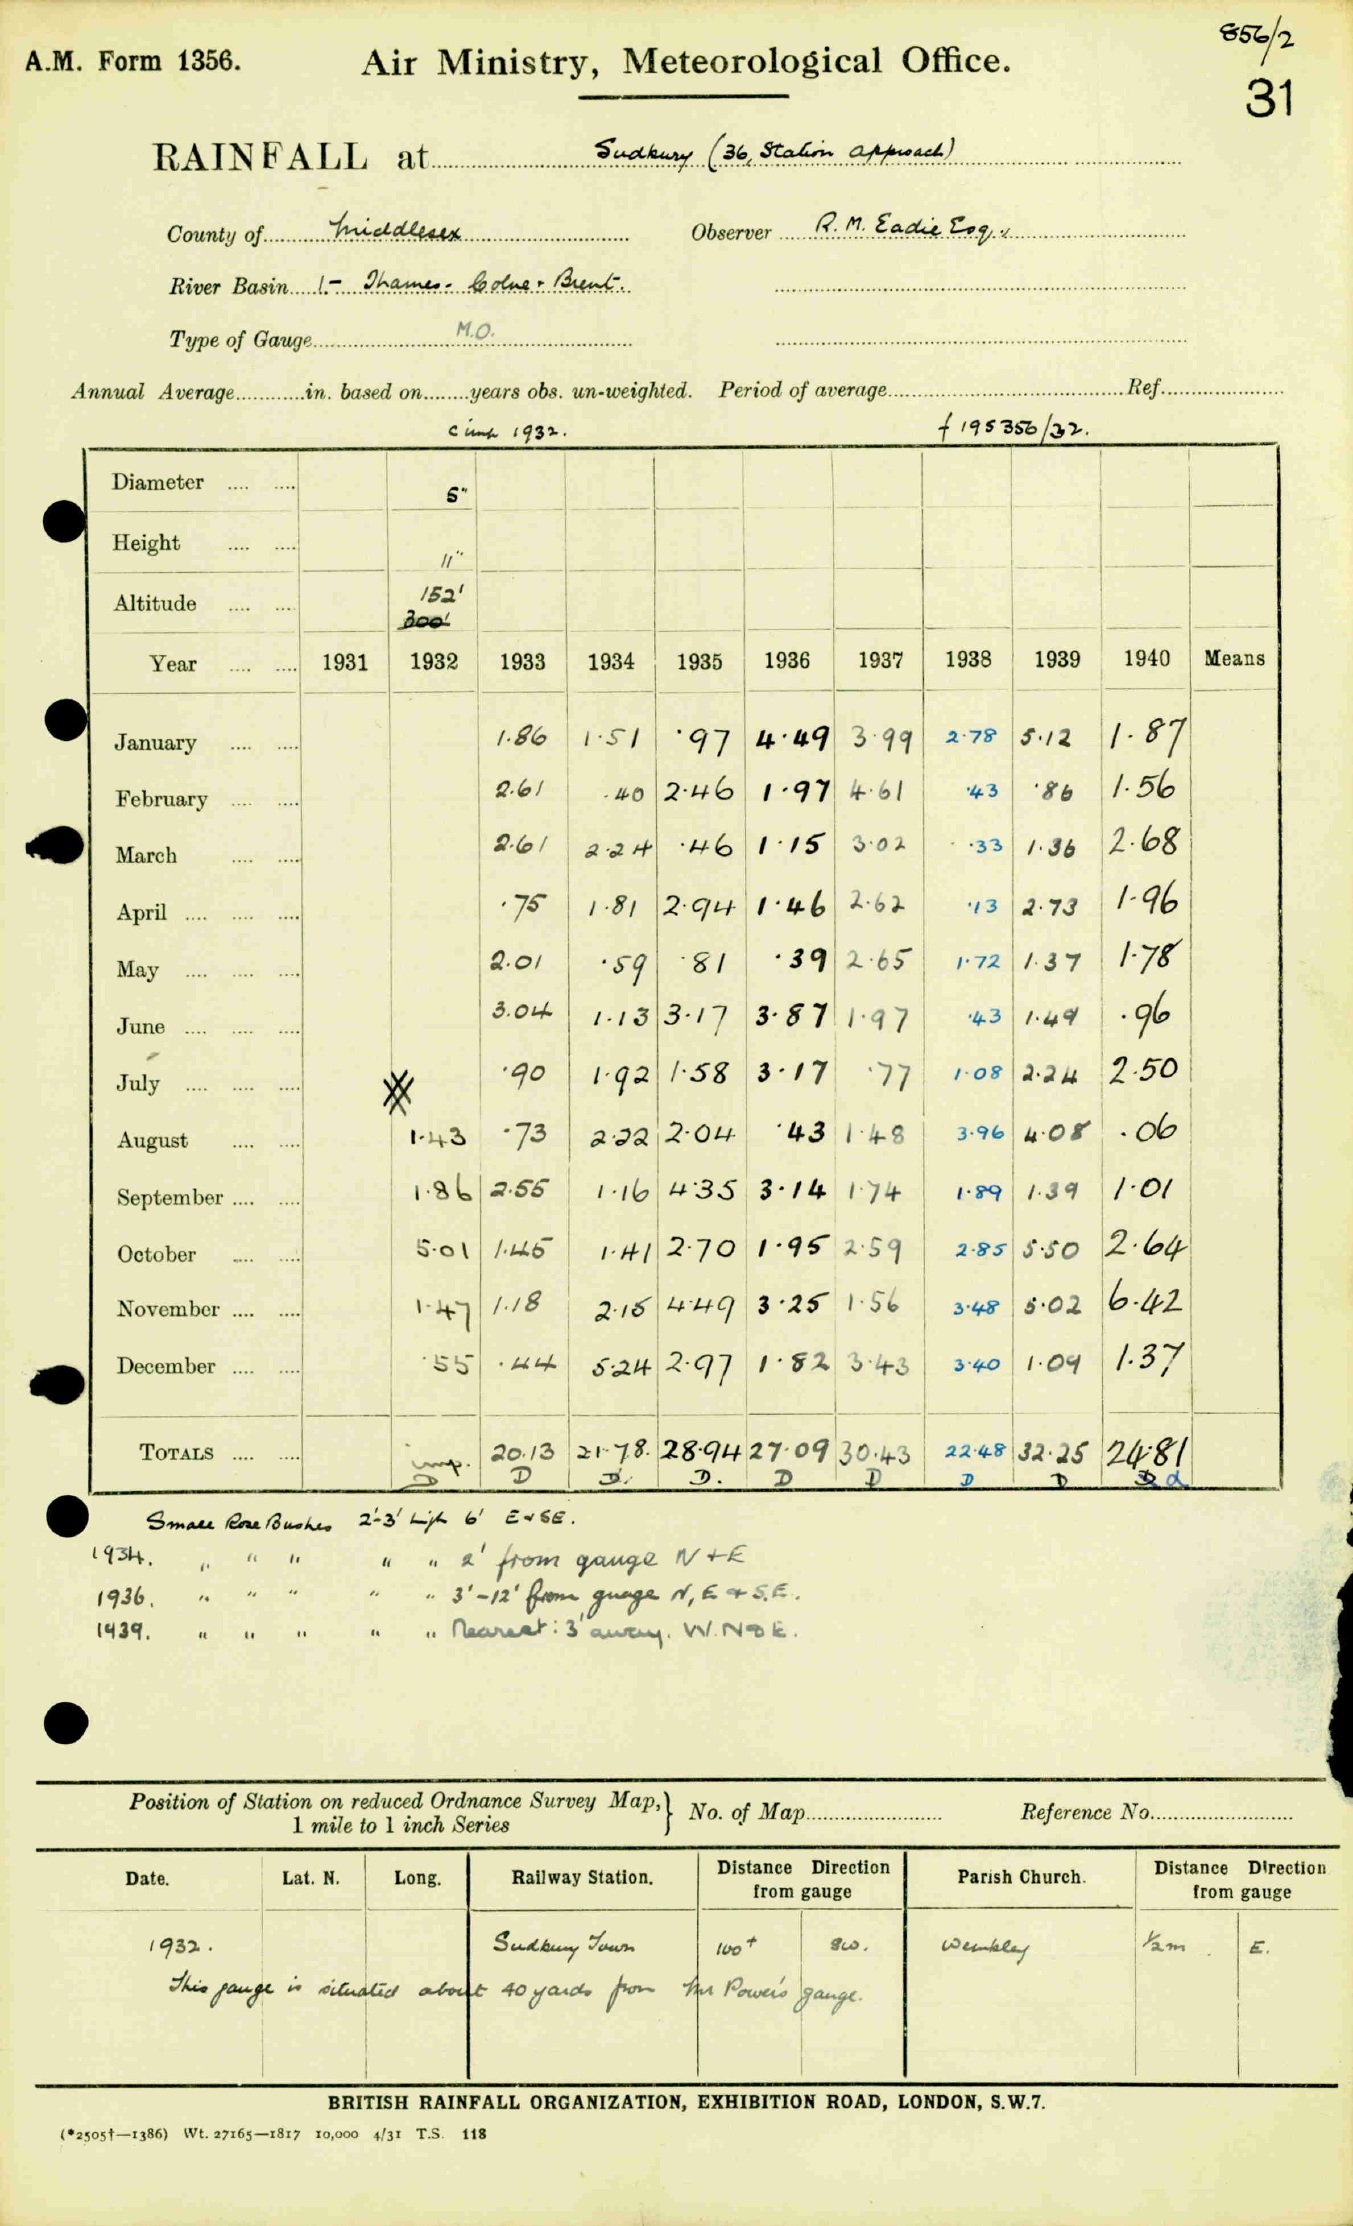 856/2
A.M. Form 1356. Air Ministry, Meteorological Office. 31
RAINFALL at Sudbury (36, Station Approach)
County of Middlesex Observer R. M. Eadie Esq.
River Basin 1.- Thames - Colne + Brent.
Type of Gauge M.O.
Annual Average in. based on years obs. un-weighted. Period of average Ref.
1932. f 195356/32.
Diameter 5"
Height 11"
Altitude 152'
300'
Year 1931 1932 1933 1934 1935 1936 1937 1938 1939 1940 Means
January 1.86 1.51 .97 4.49 3.99 2.78 5.12 1.87
February 2.61 .40 2.46 1.97 4.61 .43 .86 1.56
March 2.61 2.24 .46 1.15 3.02 .33 1.36 2.68
April .75 1.81 2.94 1.46 2.62 .13 2.73 1.96
May 2.01 .59 .81 .39 2.65 1.72 1.37 1.78
June 3.04 1.13 3.17 3.87 1.97 .43 1.49 .96
July .90 1.92 1.58 3.17 .77 1.08 2.24 2.50
August 1.43 .73 2.22 2.04 .43 1.48 3.96 4.08 .06
September 1.86 2.55 1.16 4.35 3.14 1.74 1.89 1.39 1.01
October 5.01 1.45 1.41 2.70 1.95 2.59 2.85 5.50 2.64
November 1.47 1.18 2.15 4.49 3.25 1.56 3.48 5.02 6.42
December .55 .44 5.24 2.97 1.82 3.43 3.40 1.09 1.37
TOTALS imp. 20.13 21.78. 28.94 27.09 30.43 22.48 32.25 24.81
D D D. D. D D D D D d
Small Rose Bushes 2'-3' high 6' E & SE.
1934. " " " " " 2' from gauge N + E
1936. " " " " " 3'-12' from guage N, E & S.E.
1939. " " " " " Nearest: 3' away. W. N & E.
Position of Station on reduced Ordnance Survey Map, 1 mile to 1 inch Series } No. of Map Reference No.
Date. Lat. N. Long. Railway Station. Distance Direction from gauge Parish Church. Distance Direction from gauge
1932. Sudbury Town 100+ SW. Wembley ½m. E.
This gauge is situated about 40 yards from Mr Power's gauge.
BRITISH RAINFALL ORGANIZATION, EXHIBITION ROAD, LONDON, S.W.7.
(*2505†—1386) Wt. 27165—1817 10,000 4/31 T.S. 118